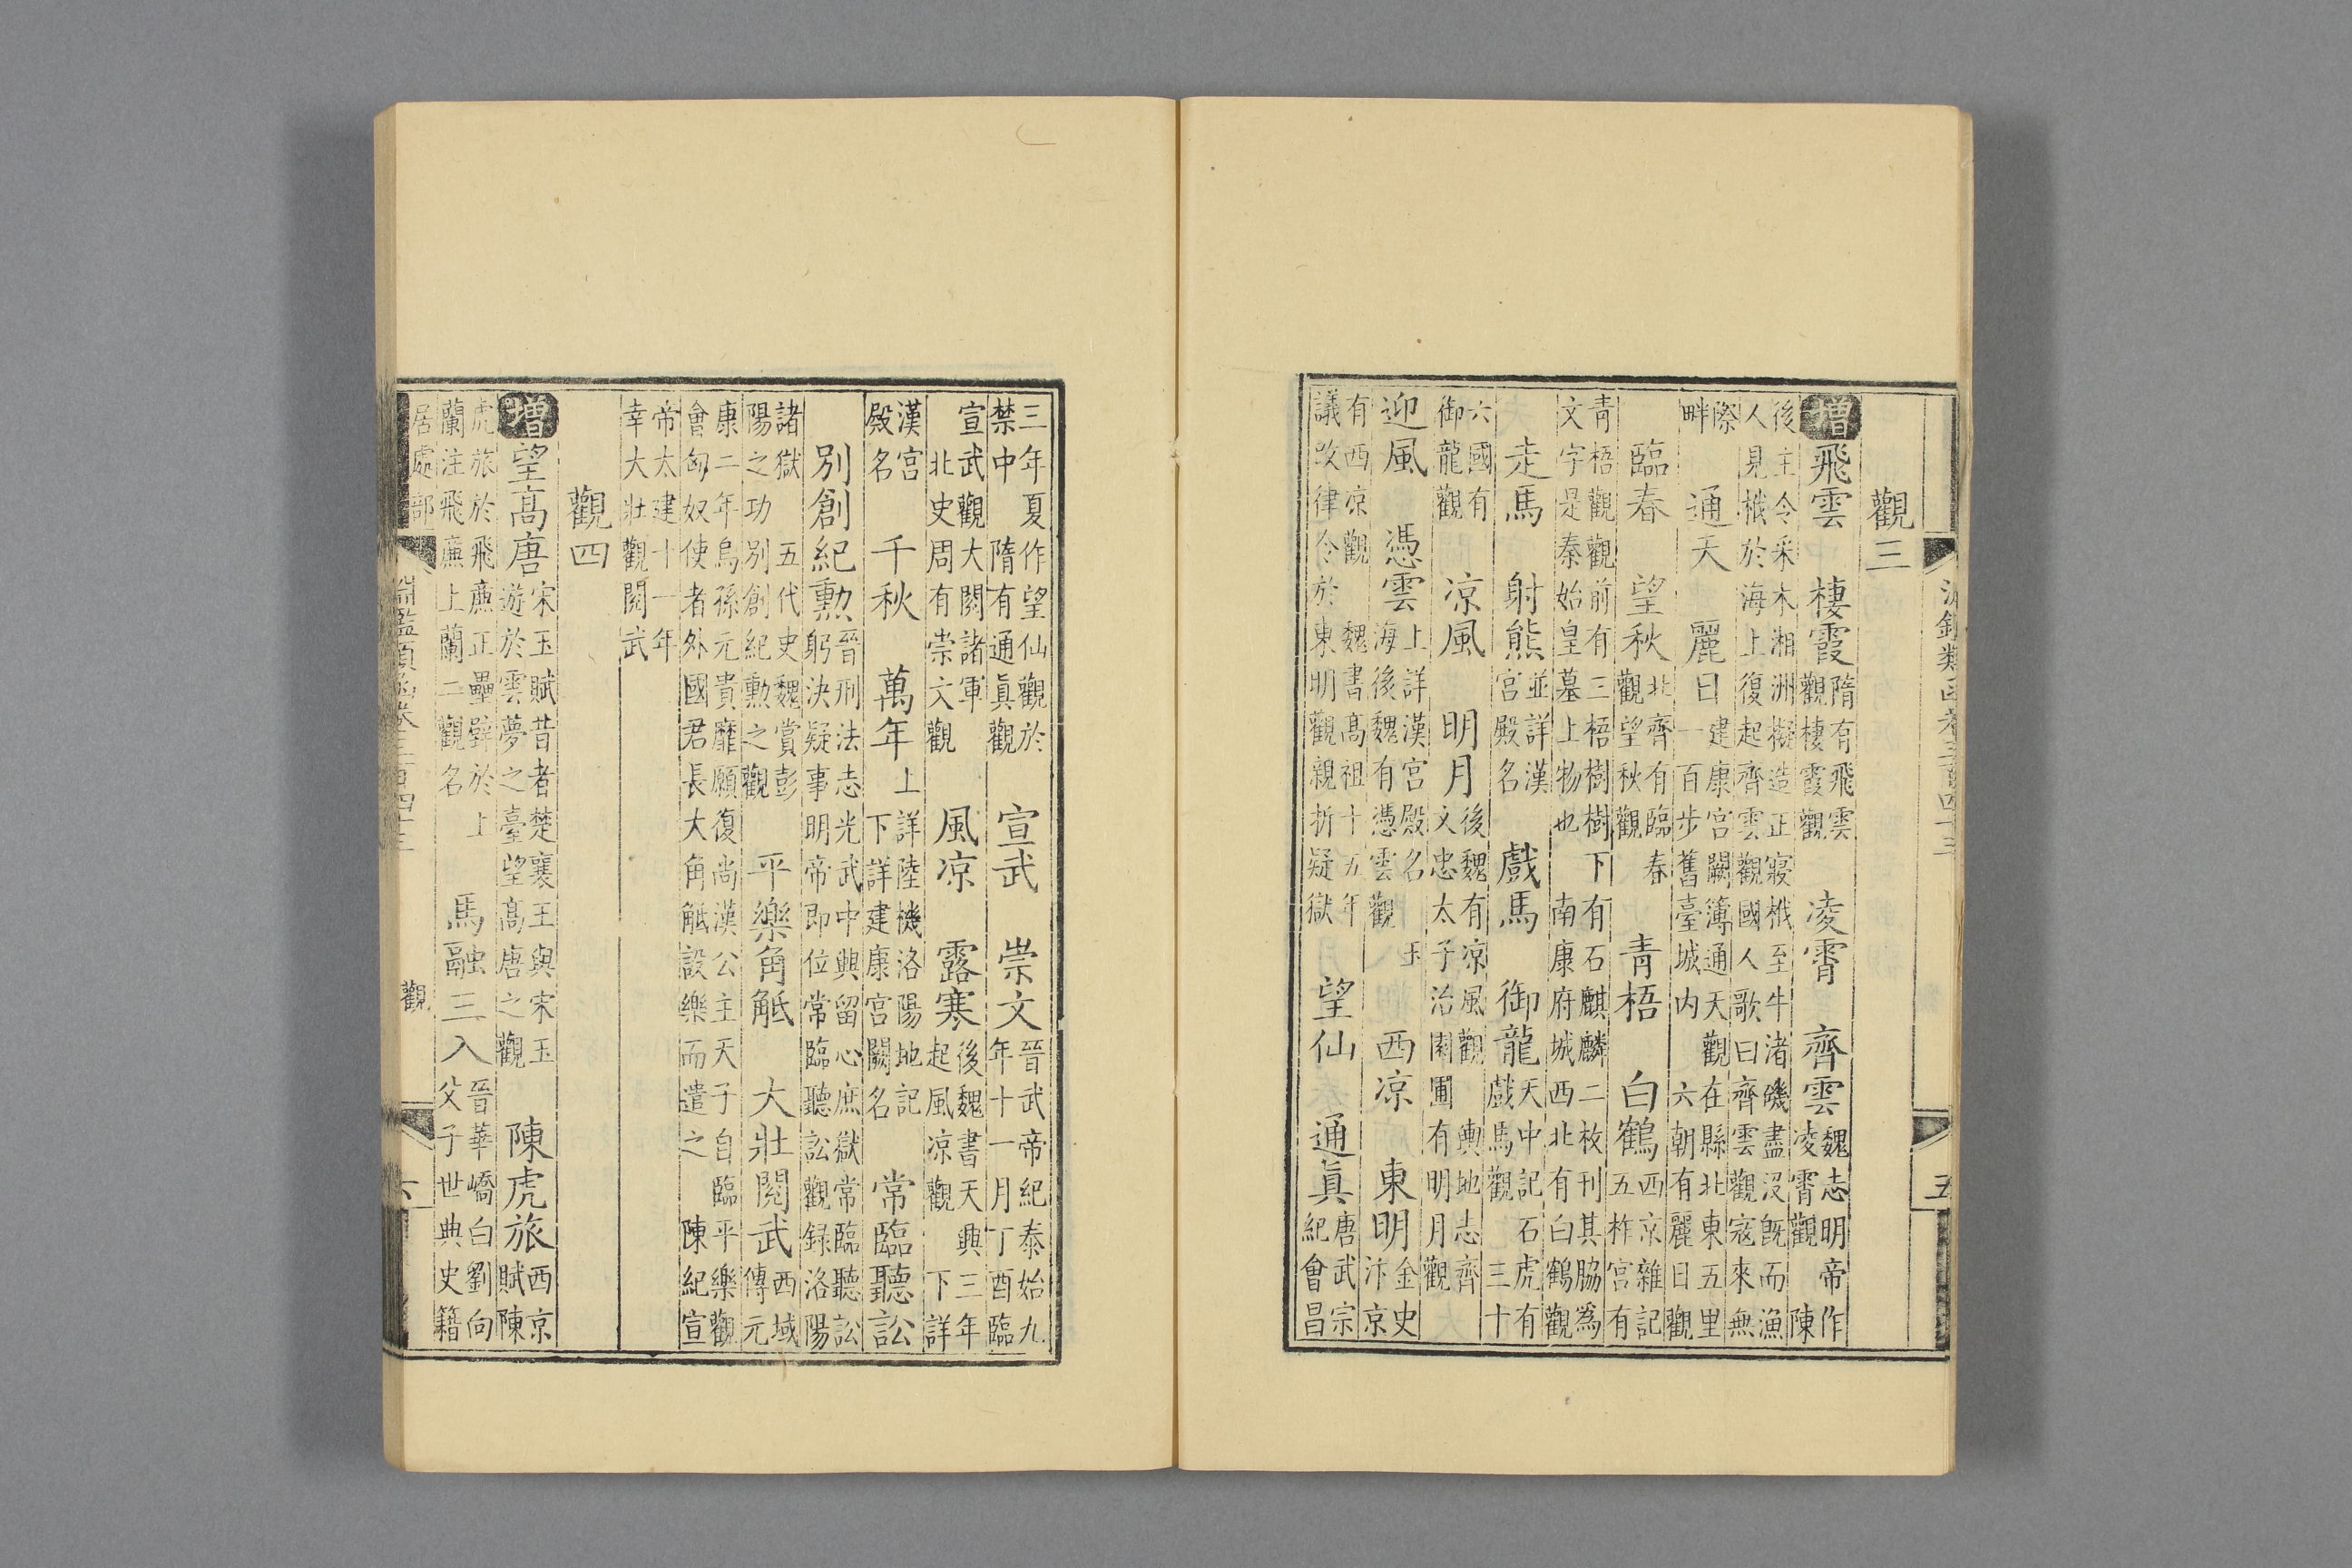 淵鑑類函卷三百四十三 五
觀三
增飛雲 棲霞隋有飛雲觀棲霞觀 凌霄 齊雲魏志明帝作凌霄觀 陳
後主令采木湘洲擬造正寢栰至牛渚磯盡沒旣而漁人見栰於海上復起齊雲觀國人歌曰齊雲觀寇來無
際畔 通天 麗日建康宮闕簿通天觀在縣北東五里一百步舊臺城内 六朝有麗日觀
臨春 望秋北齊有臨春觀望秋觀 青梧 白鶴西京雜記五柞宮有
青梧觀觀前有三梧樹樹下有石麒麟二枚刊其脇為文字是秦始皇墓上物也 南康府城西北有白鶴觀
走馬 射熊並詳漢宮殿名 戲馬 御龍天中記石虎有戲馬觀 三十
六國有御龍觀 凉風 明月後魏有凉風觀 輿地志齊文忠太子治園圃有明月觀
迎風 憑雲上詳漢宮殿名 玉海後魏有憑雲觀 西凉 東明金史汴京
有西凉觀 魏書髙祖十五年議改律令於東明觀親折疑獄 望仙 通眞唐武宗紀會昌
三年夏作望仙觀於禁中 隋有通眞觀 宣武 崇文晉武帝紀泰始九年十一月丁酉臨
宣武觀大閱諸軍 北史周有崇文觀 風凉 露寒後魏書天興三年起風凉觀 下詳
漢宮殿名 千秋 萬年上詳陸機洛陽地記下詳建康宮闕名 常臨聽訟
別創紀勲晉刑法志光武中興留心庶獄常臨聽訟躬決疑事明帝即位常臨聽訟觀録洛陽
諸獄 五代史魏賞彭陽之功別創紀勲之觀 平樂角觝 大壯閱武西域傳元
康二年烏孫元貴靡願復尚漢公主天子自臨平樂觀會匈奴使者外國君長大角觝設樂而遣之 陳紀宣
帝太建十一年幸大壯觀閱武
觀四
增望髙唐宋玉賦昔者楚襄王與宋玉遊於雲夢之臺望髙唐之觀 陳虎旅西京賦陳
虎旅於飛廉正壘壁於上蘭注飛廉上蘭二觀名 馬融三入晉華嶠白劉向父子世典史籍
居處部 淵鑑類函卷三百四十三 觀 六